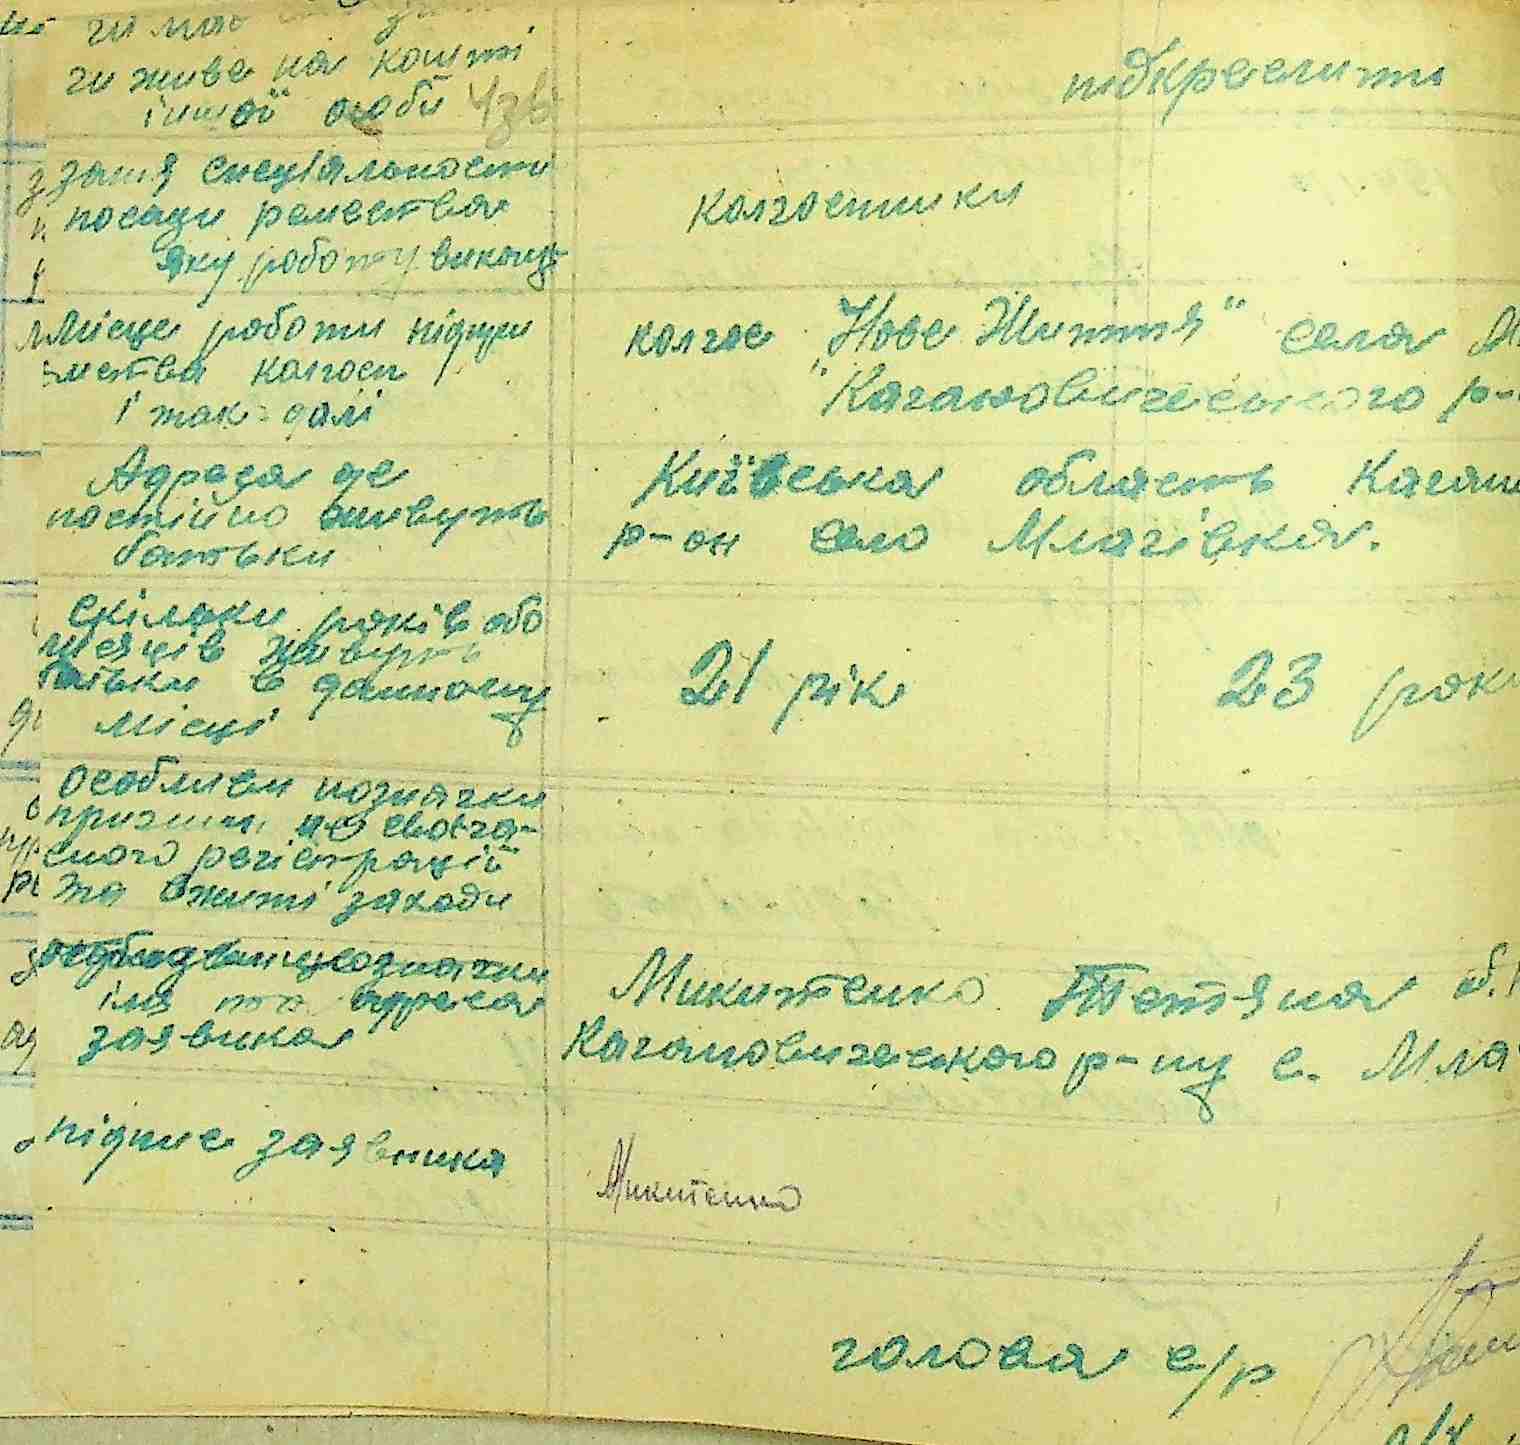 чи має
чи живе на кошті
іншої особи
підкреслити
заняя спеціальности
посади ремества
яку роботу викону
колгоспники
Місце роботи підпри
мства колгосп
і так далі
колгос "Нове Життя" села М
"Кагановическького р-
Адреса де
постійно живуть
батьки
Київська область Кагано
р-он село Млачівка.
скілки років або
місяців живуть
батьки в данному
місці
21 рік
23 роки
особливи позначки
причини не своеча-
сного регістрації
та вжиті заходи
імя та адреса
заявика
Микитенко Тетяна об.
Кагановическького р-ну с. Мла
підпис заявника
Микитенко
голова с/р